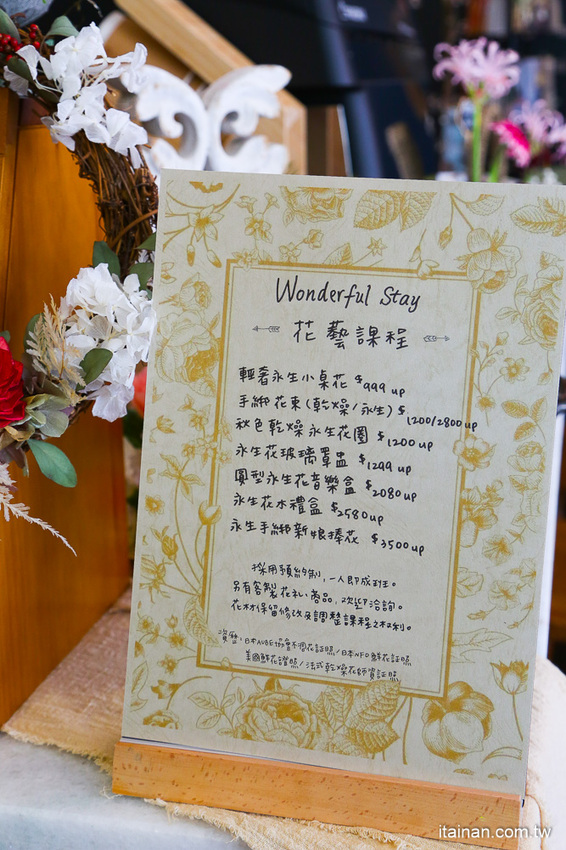 Wonderful Stay
花藝課程
輕奢永生小桌花 $999 up
手綁花束(乾燥/永生) $1200/2800 up
秋色乾燥永生花圈 $1200 up
永生花玻璃罩盅 $1299 up
圓型永生花音樂盒 $2080 up
永生花木禮盒 $2580 up
永生手綁新娘捧花 $3500 up
採用預約制,一人即成班。
另有客製花礼/商品,歡迎洽詢。
花材保留修改及調整課程之权利。
資歷:日本AUBE協會不凋花証照/日本NFD鮮花証照
美國鮮花證照/法式乾燥花師資証照
itainan.com.tw